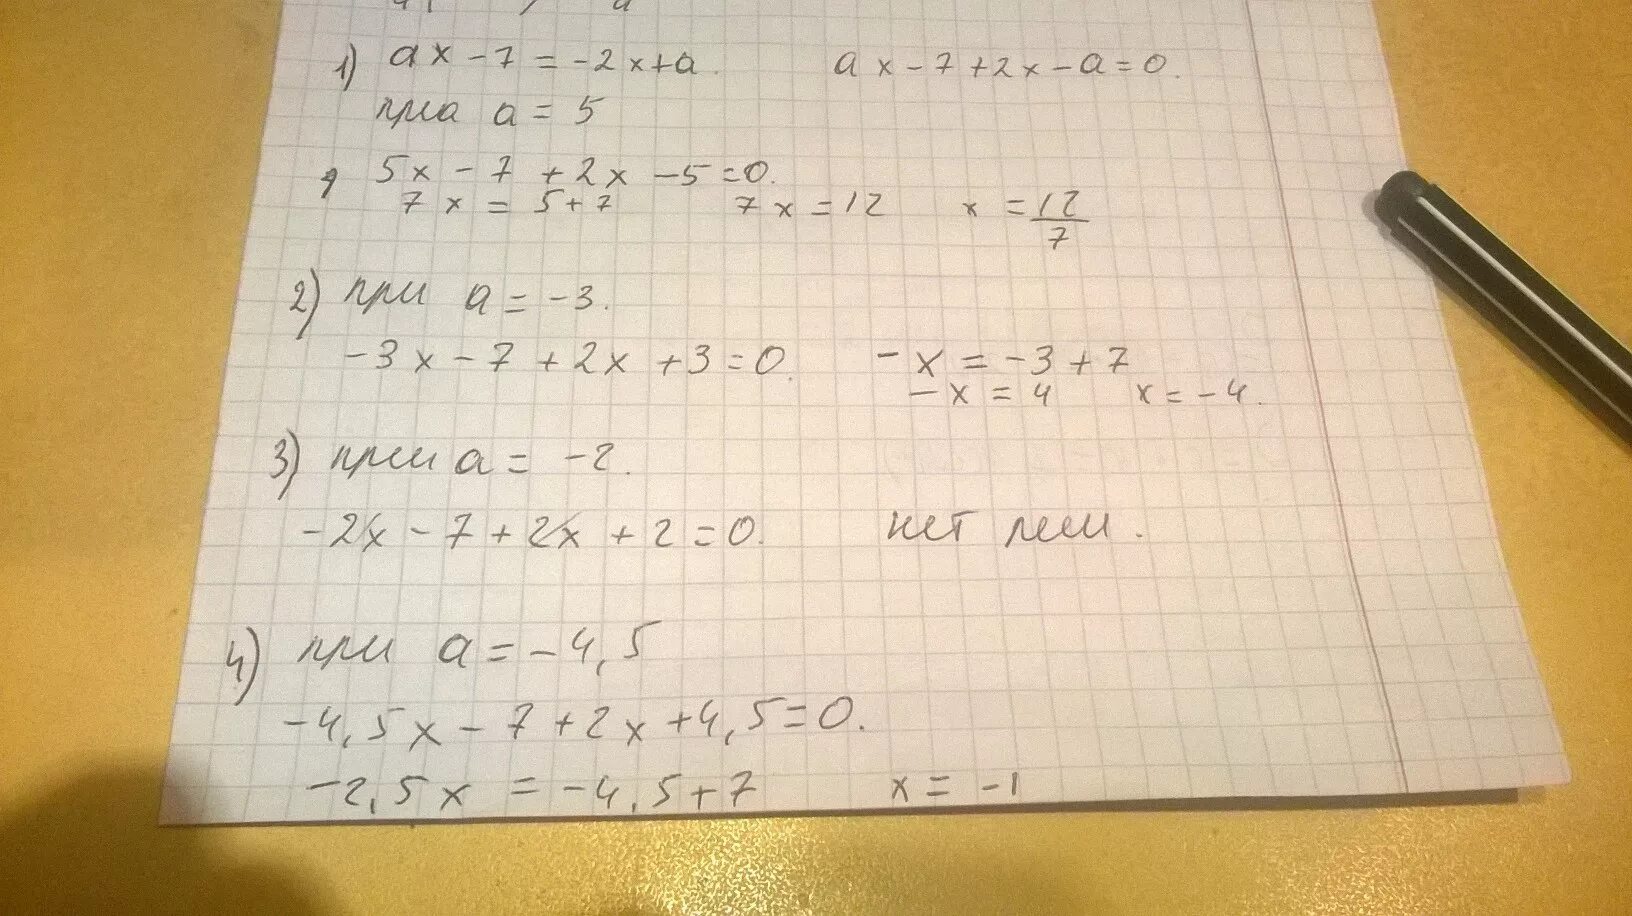 1) ax - 7 = -2x + a. ax - 7 + 2x - a = 0.
при a = 5
5x - 7 + 2x - 5 = 0.
7x = 5 + 7 7x = 12 x = 12/7
2) при a = -3.
-3x - 7 + 2x + 3 = 0. -x = -3 + 7
-x = 4 x = -4.
3) при a = -2.
-2x - 7 + 2x + 2 = 0. нет реш.
4) при a = -4,5
-4,5x - 7 + 2x + 4,5 = 0.
-2,5x = -4,5 + 7 x = -1